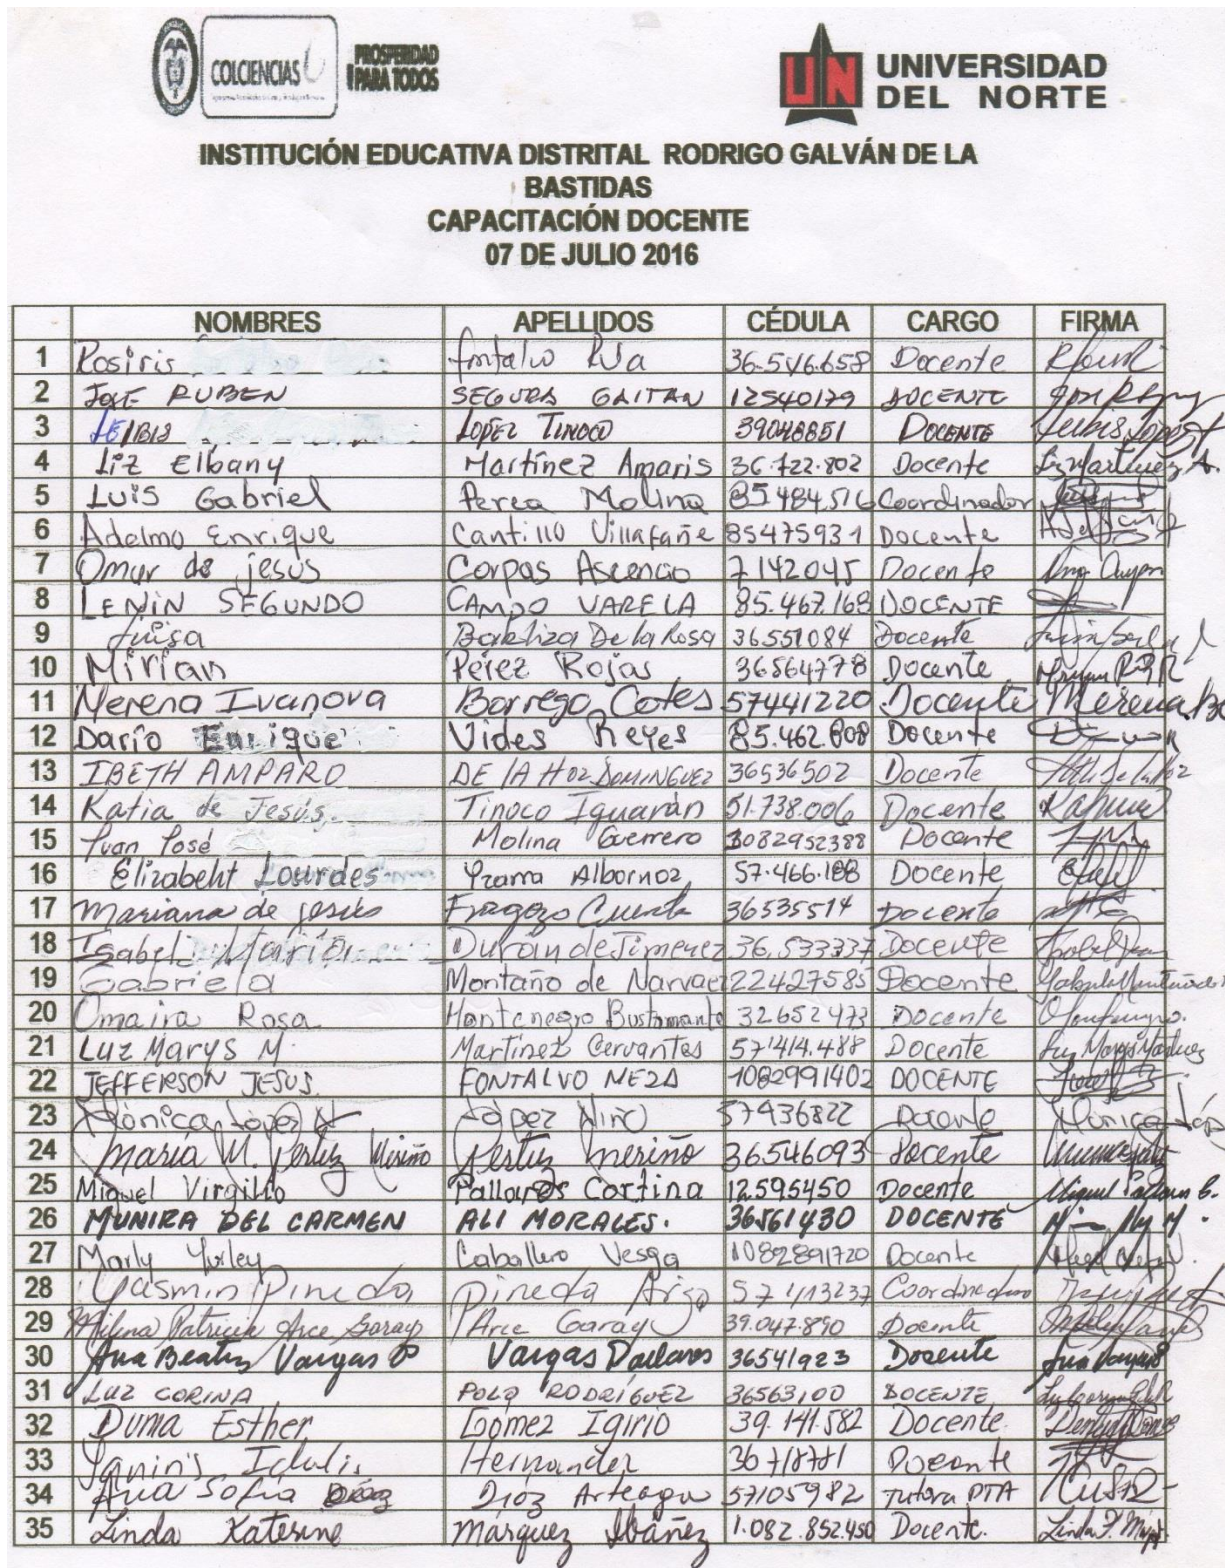 COLCIENCIAS
PROSPERIDAD
PARA TODOS
UN UNIVERSIDAD
DEL NORTE
INSTITUCIÓN EDUCATIVA DISTRITAL RODRIGO GALVÁN DE LA
BASTIDAS
CAPACITACIÓN DOCENTE
07 DE JULIO 2016
NOMBRES APELLIDOS CÉDULA CARGO FIRMA
1 Rosiris 36.546.658 Docente
2 JOSE RUBEN SEGURA GAITAN 12540179 DOCENTE
3 LEIBIS LOPEZ TINOCO 39048851 DOCENTE Leibis Lopez T
4 Liz Elbany Martínez Amaris 36.722.802 Docente Liz Martinez A.
5 Luis Gabriel Perea Molina 85.484.516 Coordinador
6 Adolmo Enrique Cantillo Villafañe 85475931 Docente
7 Omar de jesus Corpas Ascencio 7142045 Docente
8 LENIN SEGUNDO CAMPO VARELA 85.467.168 DOCENTE
9 Luisa De la Rosa 36551084 Docente
10 Mirian Pérez Rojas 36564778 Docente
11 Merena Ivanova Borrego Cotes 57441220 Docente Merena Bo
12 Darío Enrique Vides Reyes 85.462.808 Docente
13 IBETH AMPARO DE LA HOZ DOMINGUEZ 36536502 Docente
14 Katia de Jesús Tinoco Iguarán 51.738.006 Docente
15 Juan José Molina Guerrero 1082952388 Docente
16 Elizabeht Lourdes Yzarra Albornoz 57.466.188 Docente
17 Mariana de jesús Fragozo Cuenta 36535514 Docente
18 Isabel María Durán de Jimenez 36.533337 Docente
19 Gabriela Montaño de Narvaez 22427585 Docente
20 Omaira Rosa Montenegro Bustamante 32652473 Docente
21 Luz Marys M. Martínez Cervantes 57'414.488 Docente Luz Marys Martínez
22 JEFFERSON JESUS FONTALVO MEZA 1082991402 DOCENTE
23 Mónica López N López Niño 57436822 Docente Mónica López
24 María M. Pertuz Meriño Pertuz meriño 36546093 Docente
25 Miguel Virgilio Pallares Cortina 12.595450 Docente Miguel Pallares C.
26 MUNIRA DEL CARMEN ALI MORALES. 36561430 DOCENTE
27 Marly Yurley Caballero Vesga 1082891720 Docente
28 Yasmin Pineda pineda 57413237
29 Milena Patricia Arce Garay Arce Garay 39.047.890 Docente
30 Ana Beatriz Vargas P Vargas 36541923 Docente Ana Vargas
31 LUZ CORINA POLO RODRÍGUEZ 36563100 DOCENTE
32 Duma Esther Gómez Igirio 39.141.582 Docente
33 Hernandez 36718781 Docente
34 Ana Sofía Díaz Arteaga 57105982 Tutora PTA
35 Linda Katerine Márquez Ibáñez 1.082.852.450 Docente.